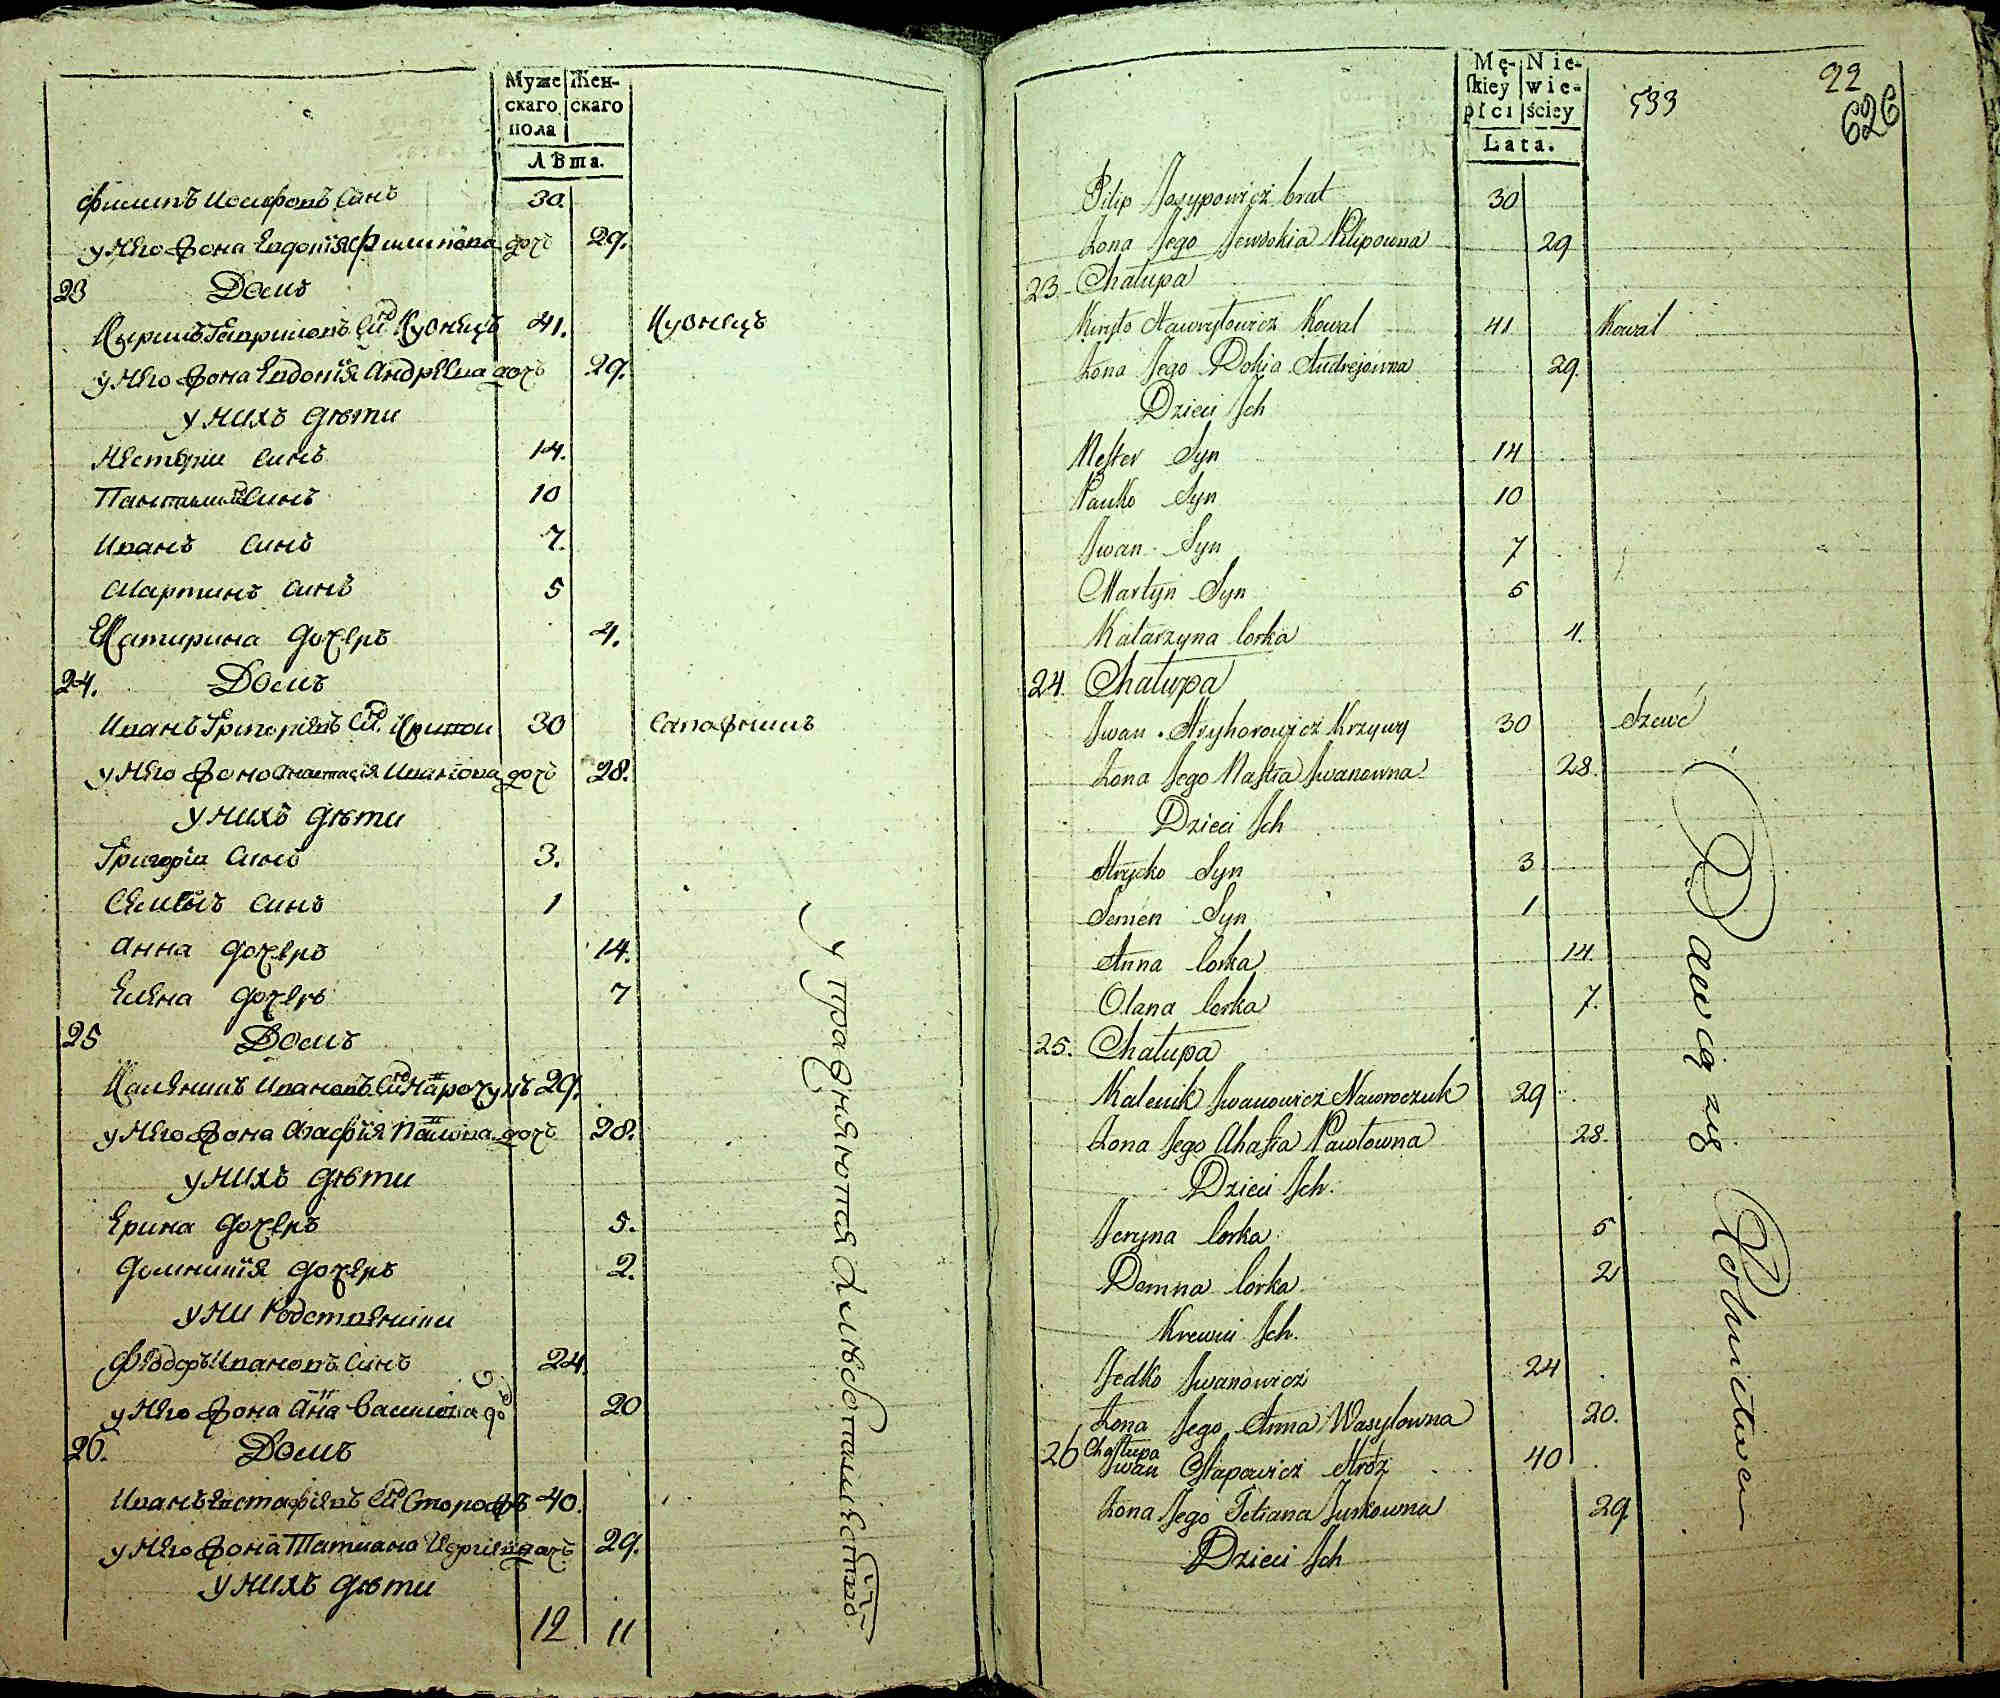 Муже Жен-
скаго скаго
пола
Лѣта.
Филипъ Иосифовъ Синъ 30.
у Него Жона Евдокія Филипова дочь 29.
23 Домъ
Кирилъ Гавриловъ Сир Кузнецъ 41. Кузнецъ
у Него Жона Евдокія Андреева дочь 29.
у Нихъ дѣти
Нестерш Синъ 14.
Синъ 10
Иванъ Синъ 7.
Мартинъ Синъ 5
Екатирина дочеръ 4.
24. Домъ
Иванъ Григоріевъ Кривои 30 Сапожникъ
у Него Жона Анастасія Иванова дочь 28.
у Нихъ дѣти
Григорiи Синъ 3.
Семенъ Синъ 1
Анна дочеръ 14.
Елена дочеръ 7
25 Домъ
Каленикъ Ивановъ 29.
у Него Жона Агафія Павлова дочь 28.
у Нихъ дѣти
Ерина дочеръ 5.
Домникія дочеръ 2.
у Ни Родственики
Федоръ Ивановъ Синъ 24.
у Него Жона Ана Василіева до 20
26. Домъ
Иванъ Евстафіевъ Сторожъ 40.
у Него Жона Татиана дочъ 29.
у Нихъ дѣти
12 11
упражняютая Хлѣбопашеством
Mę- Nie-
skiey wie-
płci ściey
Lata.
533
22
626
Pilip Josypowicz brat 30
Żona Jego Jewdokia Pilipowna 29
23 Chałupa
Kiryło Hawryłowicz Kowal 41 Kowal
Żona Jego Dokia Andrejowna 29.
Dzieci Jch
Nester Syn 14
Panko Syn 10
Jwan Syn 7
Martyn Syn 5
Katarzyna Corka 4.
24 Chałupa
Jwan Hryhorowicz Krzywy 30 Szewc
Żona Jego Nastia Jwanowna 28.
Dzieci Jch
Hrycko Syn 3
Semen Syn 1
Anna Corka 14
Olana Corka 7.
25. Chałupa
Kalenik Jwanowicz Naworoczuk 29
Żona Jego Ahafia Pawłowna 28.
Dzieci Jch.
Jeryna Corka 5
Demna Corka 2
Krewni Jch.
Fedko Jwanowicz 24
Żona Jego Anna Wasylowna 20.
26 Chałupa
Jwan Ostapowicz Stroż 40
Żona Jego Tetiana Jurkowna 29
Dzieci Jch
Bawią się Rolnictwem